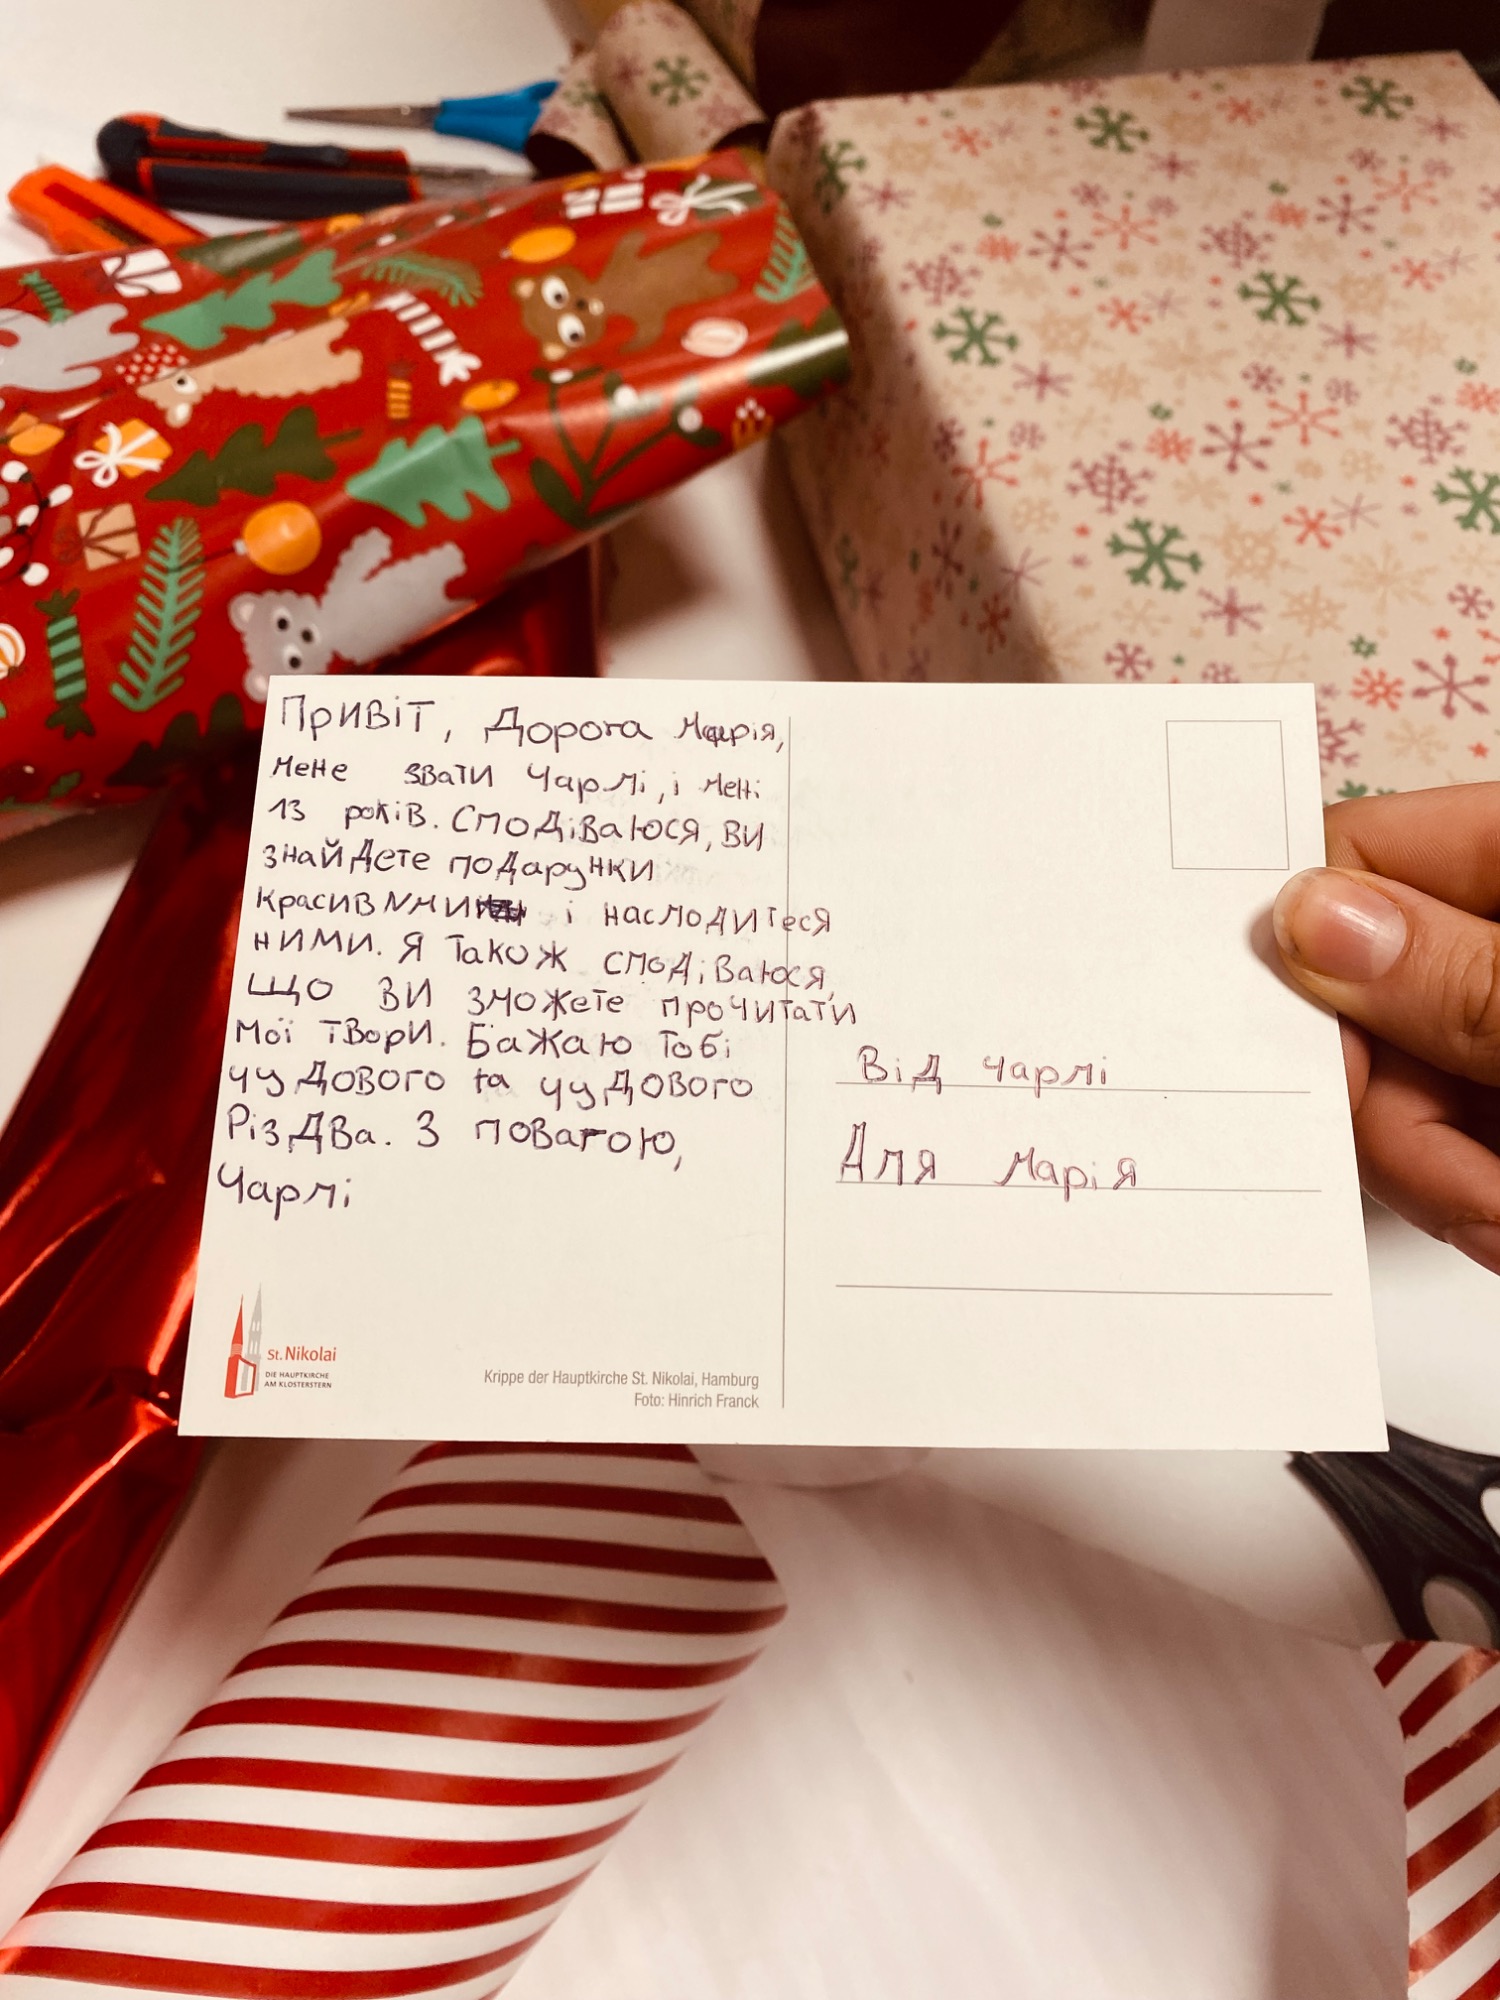 Привіт, Дорога Марія,
мене звати Чармі, і мені
13 років. Сподіваюся, ви
знайдете подарунки
красив ими і насподитеся
ними. Я також сподіваюся,
що ви зможете прочитати
мої твори. Бажаю тобі
чудового та чудового
Різдва. З повагою,
Чармі
Від Чармі
Для Марія
St. Nikolai
DIE HAUPTKIRCHE
AM KLOSTERSTERN
Krippe der Hauptkirche St. Nikolai, Hamburg
Foto: Hinrich Franck